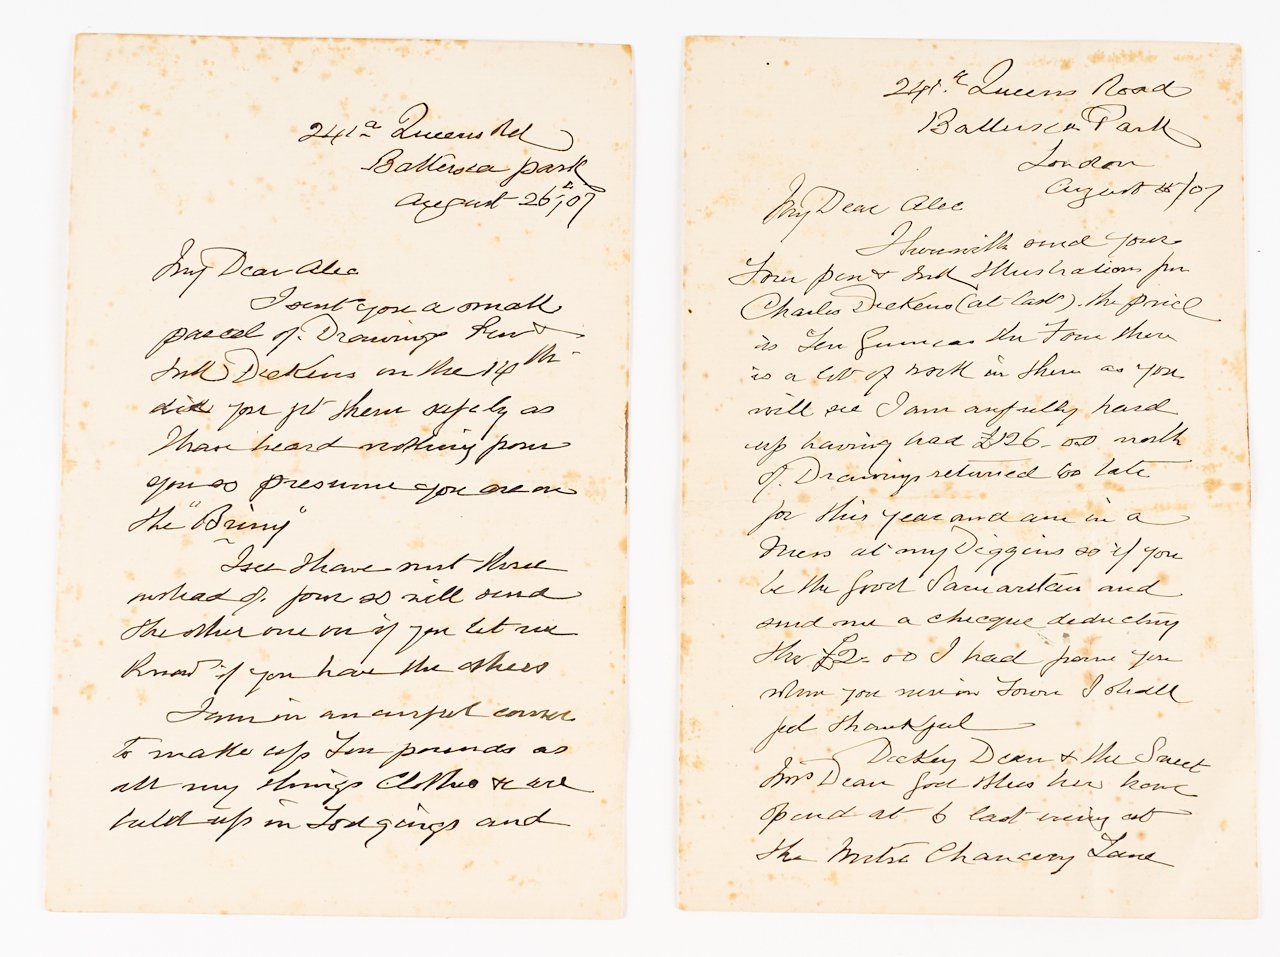 241a Queens Rd
Battersea Park
August 26th/07
My Dear Alec
I sent you a small
parcel of Drawings Pen &
Ink Dickens on the 14th
did you get them safely as
I have heard nothing from
you so presume you are on
the "Briny"
I see I have sent three
instead of four so will send
the other one on if you let me
know if you have the others
I am in an awful corner
to make up Ten pounds as
all my things Clothes & are
held up in Lodgings and
241a Queens Road
Battersea Park
London
August /07
My Dear Alec
I herewith send your
Four pen & Ink Illustrations for
Charles Dickens (at last). the price
is Ten Guineas the Four there
is a lot of work in them as you
will see I am awfully hard
up having had £126-00 worth
of Drawings returned too late
for this year and am in a
mess at my Diggins so if you
be the Good Samaritan and
send me a checque deducting
the £2-00 I had from you
when you were in Town I shall
feel thankful
Dickey Dean & the Sweet
Mrs Dean God bless her have
opened at 6 last evening at
the Mitre Chancery Lane